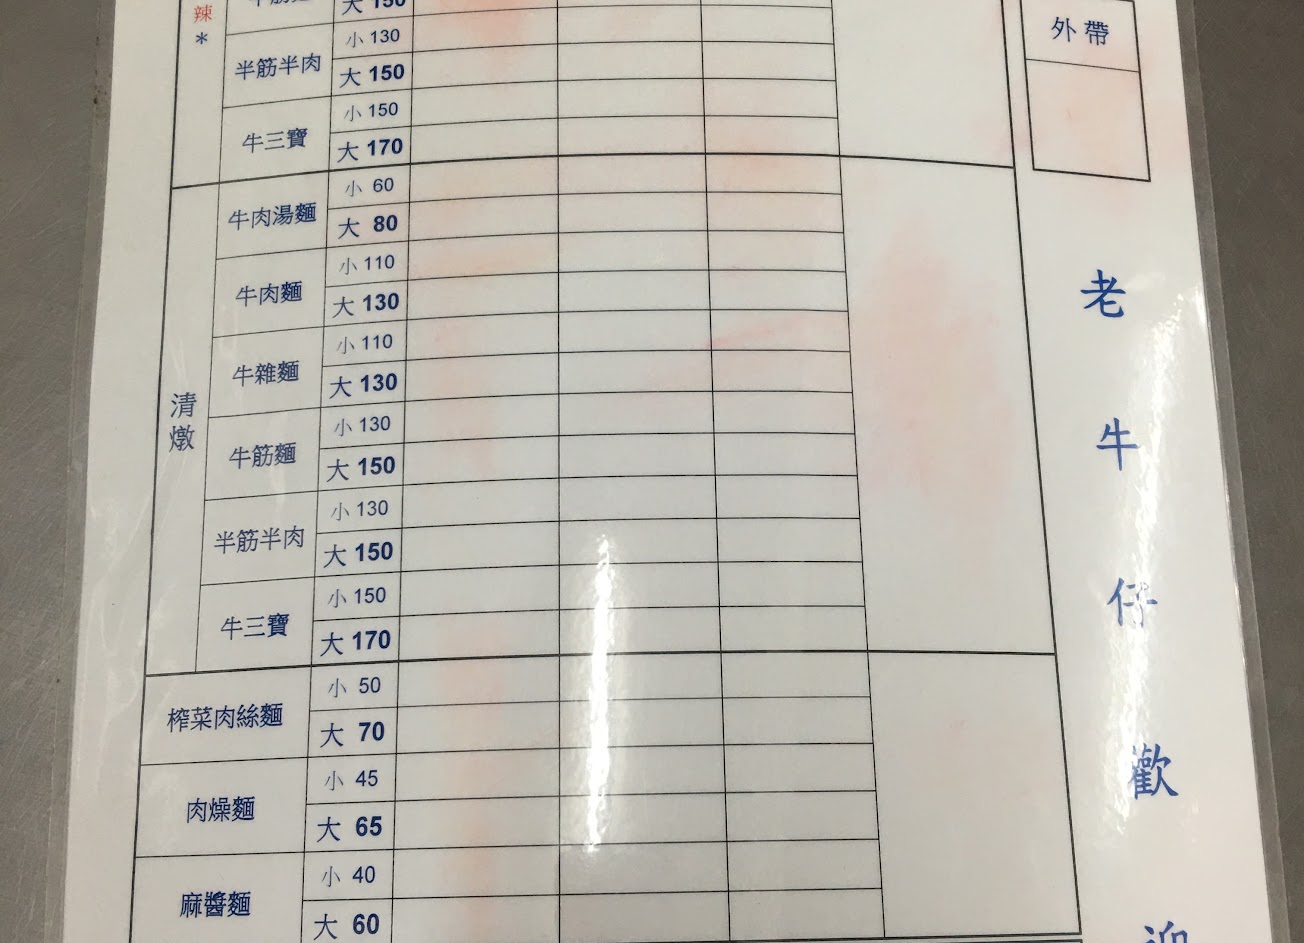 辣
*
大 150
半筋半肉
小 130
大 150
牛三寶
小 150
大 170
清燉
牛肉湯麵
小 60
大 80
牛肉麵
小 110
大 130
牛雜麵
小 110
大 130
牛筋麵
小 130
大 150
半筋半肉
小 130
大 150
牛三寶
小 150
大 170
榨菜肉絲麵
小 50
大 70
肉燥麵
小 45
大 65
麻醬麵
小 40
大 60
外帶
老牛仔歡迎